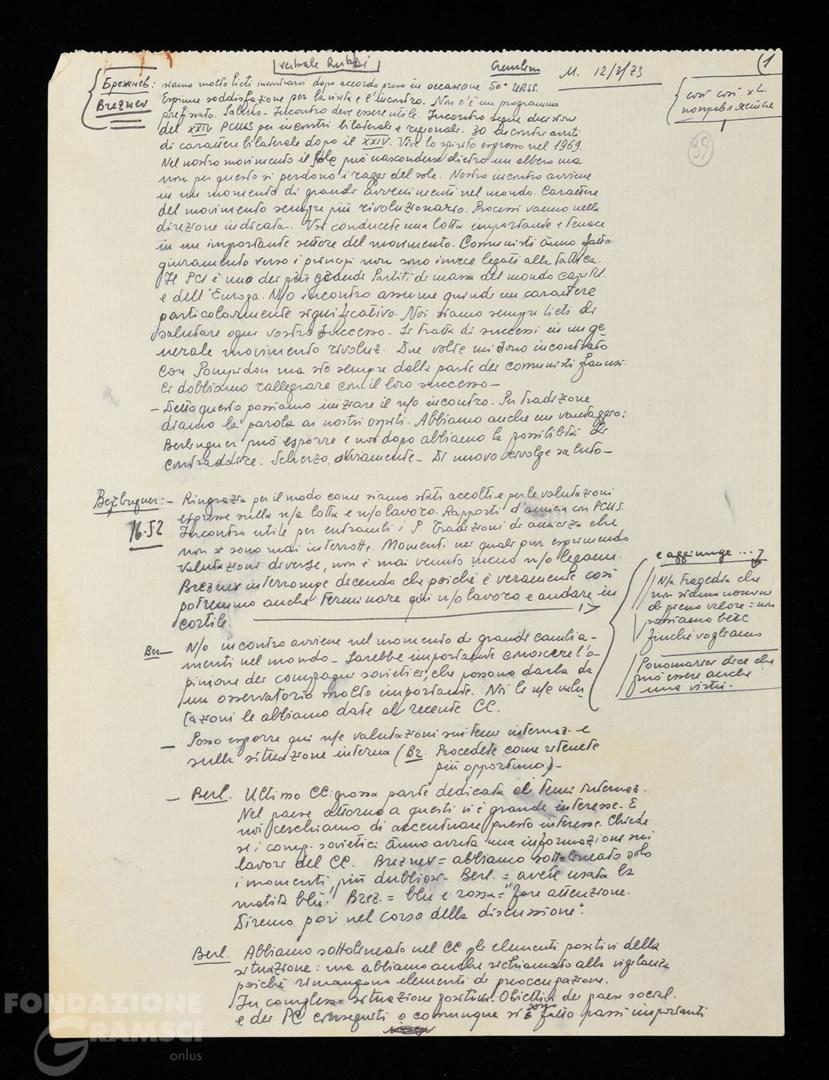 verbale Rubbi
Cremlino M. 12/3/73
(1
39
Брежнев: siamo molto lieti incontrarci dopo accordo preso in occasione 50º URSS.
Breznev Esprime soddisfazione per la visita e l'incontro. Non c'è un programma
prefissato. Saluto. Incontro deve essere utile. Incontro segue decisione
del XXIV PCUS per incontri bilaterali e regionali. 30 incontri avuti
di carattere bilaterale dopo il XXIV. Vive lo spirito espresso nel 1969.
Nel nostro movimento il sole può nascondersi dietro un albero ma
non per questo si perdono i raggi del sole. Nostro incontro avviene
in un momento di grandi avvenimenti nel mondo. Carattere
del movimento sempre più rivoluzionario. Processi vanno nella
direzione indicata. Voi conducete una lotta importante e tenace
in un importante settore del movimento. Comunisti ànno fatto
giuramento verso i principi non sono invece legati alla tattica.
Il PCI è uno dei più grandi Partiti di massa del mondo capit.
e dell'Europa. N/o incontro assume quindi un carattere
particolarmente significativo. Noi siamo sempre lieti di
salutare ogni vostro successo. Si tratta di successi in un ge-
nerale movimento rivoluz. Due volte mi sono incontrato
con Pompidou ma sto sempre dalla parte dei comunisti francesi.
Ci dobbiamo rallegrare con il loro successo –
– Detto questo possiamo iniziare il n/o incontro. Per tradizione
diamo la parola ai nostri ospiti. Abbiamo anche un vantaggio:
Berlinguer può esporre e noi dopo abbiamo la possibilità di
contraddire. Scherzo, ovviamente – Di nuovo rivolge saluto –
Berlinguer: – Ringrazia per il modo come siamo stati accolti e per le valutazioni
16.52 espresse sulla n/a lotta e n/o lavoro. Rapporti d'amicizia con PCUS.
Incontro utile per entrambi i P. Tradizioni di amicizia che
non si sono mai interrotte. Momenti nei quali pur esprimendo
valutazioni diverse, non è mai venuto meno n/o legame.
Breznev interrompe dicendo che poiché è veramente così
potremmo anche terminare qui n/o lavoro e andare in
cortile.
e aggiunge ...
N/a tragedia che
non siamo uomini
di primo valore = non
possiamo bere
finché vogliamo
Ponomariov dice che
può essere anche
una virtù.
Ber – N/o incontro avviene nel momento di grandi cambia-
menti nel mondo – Sarebbe importante conoscere l'o-
pinione dei compagni sovietici, che possono darla da
un osservatorio molto importante. Noi le n/e valu-
tazioni le abbiamo date al recente CC.
– Posso esporre qui n/e valutazioni sui temi internaz. e
sulla situazione interna (Br. Procedete come ritenete
più opportuno) –
– Berl. Ultimo CC: grossa parte dedicata ai temi internaz.
Nel paese attorno a questi vi è grande interesse. E
noi cerchiamo di accentuare questo interesse. Chiede
se i comp. sovietici ànno avuto una informazione sui
lavori del CC. Breznev = abbiamo sottolineato solo
i momenti più dubbiosi – Berl. = avete usata la
matita blù? Brez. = blù e rossa = "fare attenzione.
Diremo poi nel corso della discussione".
Berl. Abbiamo sottolineato nel CC gli elementi positivi della
situazione: ma abbiamo anche richiamato alla vigilanza
poiché rimangono elementi di preoccupazione.
In complesso situazione positiva. Obiettivi dei paesi social.
e dei PC conseguiti o comunque si sono fatto passi importanti
FONDAZIONE
GRAMSCI
onlus